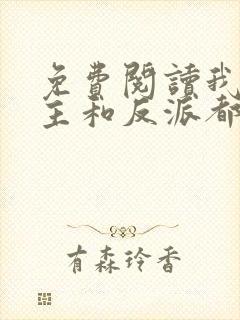 免費閱讀我
主和反派都
有森玲香